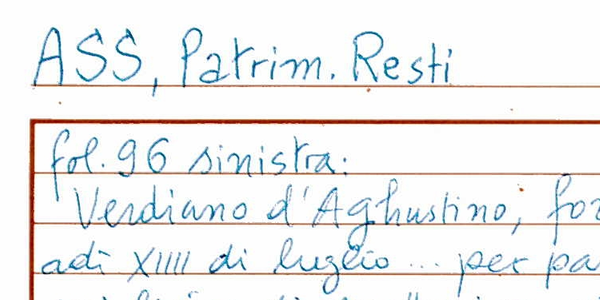 ASS, Patrim. Resti
fol. 96 sinistra:
Verdiano d'Aghustino,
adì XIIII di luglio ... per